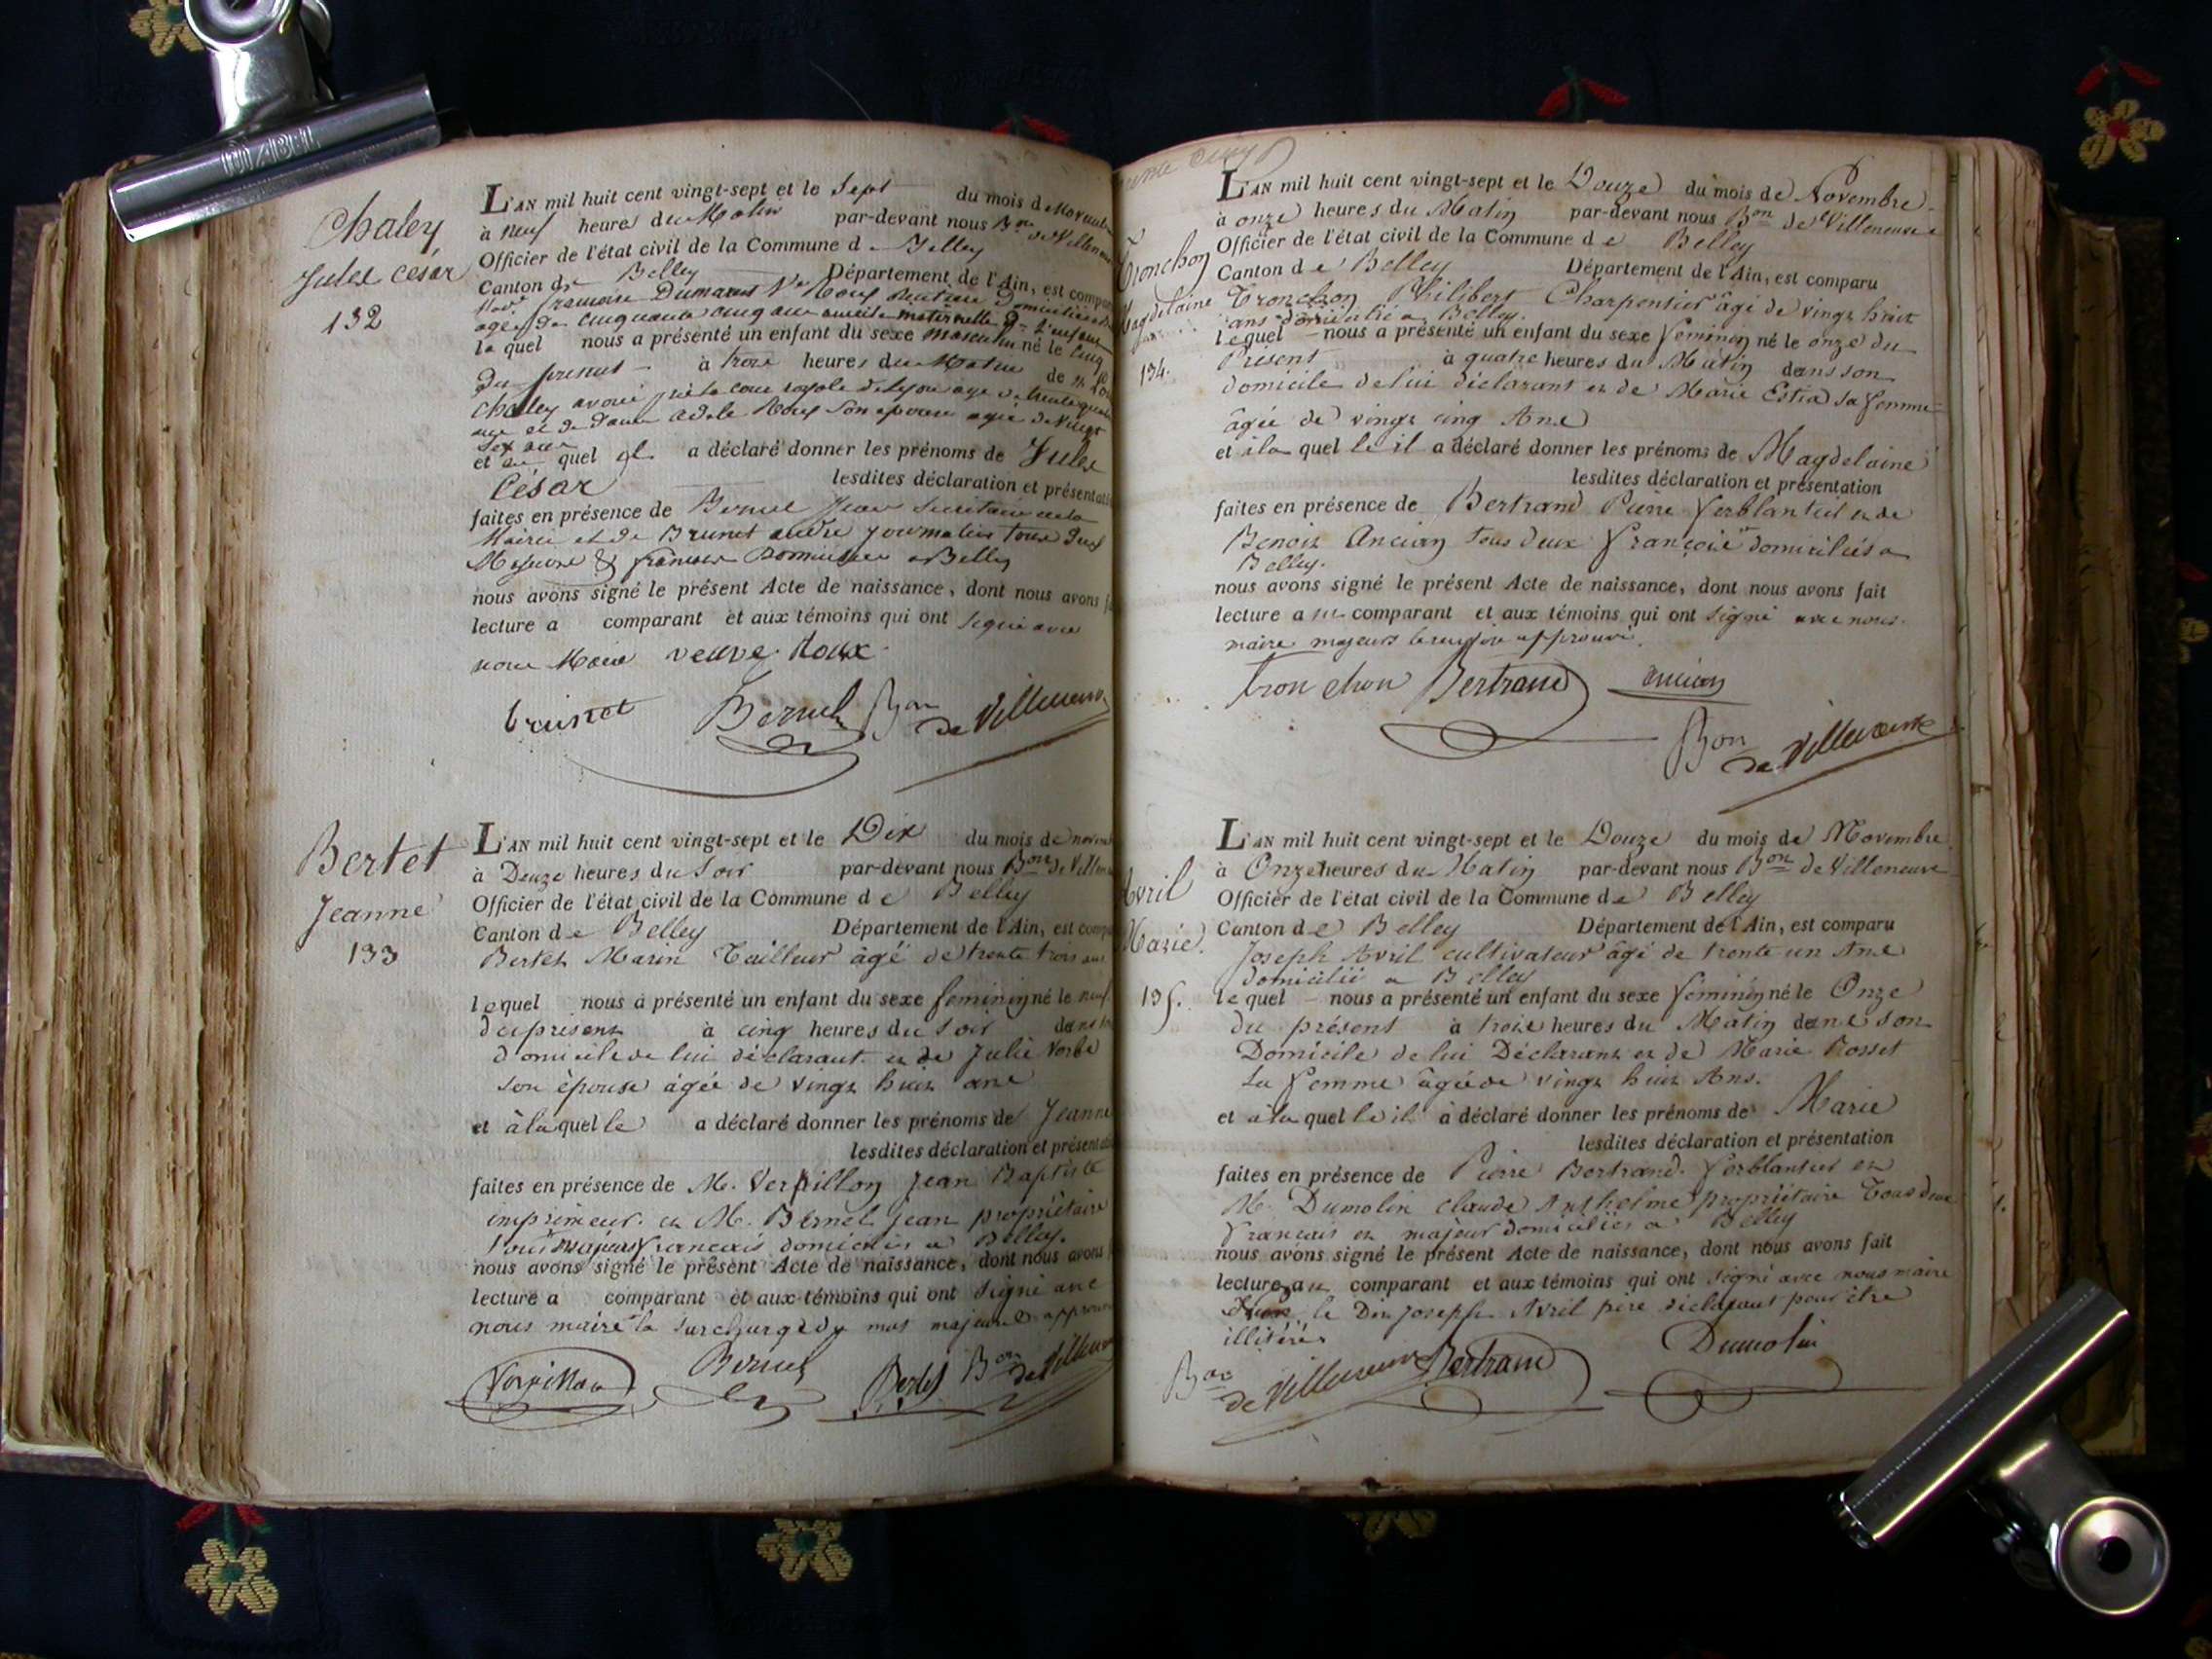 Chaley
Jules César
132
L'AN mil huit cent vingt-sept et le Sept du mois de Novemb
à neuf heures du Matin par-devant nous Bon de Villeneu
Officier de l'état civil de la Commune de Belley
Canton de Belley Département de l'Ain, est compa
françoise Dumarest Ve Roux Rentiere Domiciliée
agée de cinquante cinq ans ayeule maternelle de l'enfant
la quel nous a présenté un enfant du sexe masculin né le cinq
du present à trois heures du Matin de
Chaley avoué près la cour royale de Lyon agé de trente quatre
ans et de dame adele Roux Son epouse agée de vingt
Six ans
et au quel il a déclaré donner les prénoms de Jules
César lesdites déclaration et présentati
faites en présence de Bernel Jean Secrétaire de la
Mairie et de Brunet andré Journalier tous deux
Majeurs & francais Domiciliés a Belley
nous avons signé le présent Acte de naissance, dont nous avons f
lecture a comparant et aux témoins qui ont signé avec
nous Maire veuve Roux
brunet Bernel Bon de Villeneuve
Bertet
Jeanne
133
L'AN mil huit cent vingt-sept et le Dix du mois de novem
à Deuze heures du Soir par-devant nous Bon de Villen
Officier de l'état civil de la Commune de Belley
Canton de Belley Département de l'Ain, est compa
Bertet Marin Tailleur âgé de trente trois ans
lequel nous a présenté un enfant du sexe feminin né le neuf
du présent à cinq heures du Soir dans
domicile de lui déclarant et de Julie
son épouse âgée de vingt huit ans
et à la quelle a déclaré donner les prénoms de Jeanne
lesdites déclaration et présentati
faites en présence de M. Verpillon Jean Baptiste
imprimeur et M. Bernel jean propriétaire
tous majeurs francais domiciliés a Belley.
nous avons signé le présent Acte de naissance, dont nous avons
lecture a comparant et aux témoins qui ont signé avec
nous maire la surcharge du mot majeurs approuvé
Verpillon Bernel Bertet Bon de Villeneuve
Tronchon
Magdelaine
134.
L'AN mil huit cent vingt-sept et le Douze du mois de Novembre
à onze heures du Matin par-devant nous Bon de Villeneuve
Officier de l'état civil de la Commune de Belley
Canton de Belley Département de l'Ain, est comparu
Tronchon Philibert Charpentier âgé de vingt huit
ans domicilié a Belley.
lequel nous a présenté un enfant du sexe féminin né le onze du
Présent à quatre heures du Matin dans son
domicile de lui déclarant et de Marie Estia sa femme
âgée de vingt cinq Ans
et à la quelle il a déclaré donner les prénoms de Magdelaine
lesdites déclaration et présentation
faites en présence de Bertrand Pierre ferblantier et de
Benoit Ancian tous deux français domiciliés a
Belley.
nous avons signé le présent Acte de naissance, dont nous avons fait
lecture au comparant et aux témoins qui ont signé avec nous
maire majeurs le renvoi approuvé.
tronchon Bertrand ancian
Bon de Villeneuve
Avril
Marie.
135.
L'AN mil huit cent vingt-sept et le Douze du mois de Novembre
à Onze heures du Matin par-devant nous Bon de Villeneuve
Officier de l'état civil de la Commune de Belley
Canton de Belley Département de l'Ain, est comparu
Joseph Avril cultivateur âgé de trente un Ans
domicilié a Belley
lequel nous a présenté un enfant du sexe féminin né le Onze
du présent à trois heures du Matin dans son
Domicile de lui Déclarant et de Marie Rosset
sa femme âgée de vingt huit Ans.
et à la quelle il à déclaré donner les prénoms de Marie
lesdites déclaration et présentation
faites en présence de Pierre Bertrand ferblantier et
M. Dumolin claude Anthelme propriétaire Tous deux
francais et majeur domiciliés a Belley
nous avons signé le présent Acte de naissance, dont nous avons fait
lecture au comparant et aux témoins qui ont signé avec nous maire
le Dit Joseph Avril père déclarant pour être
illitéré.
Bon de Villeneuve Bertrand Dumolin